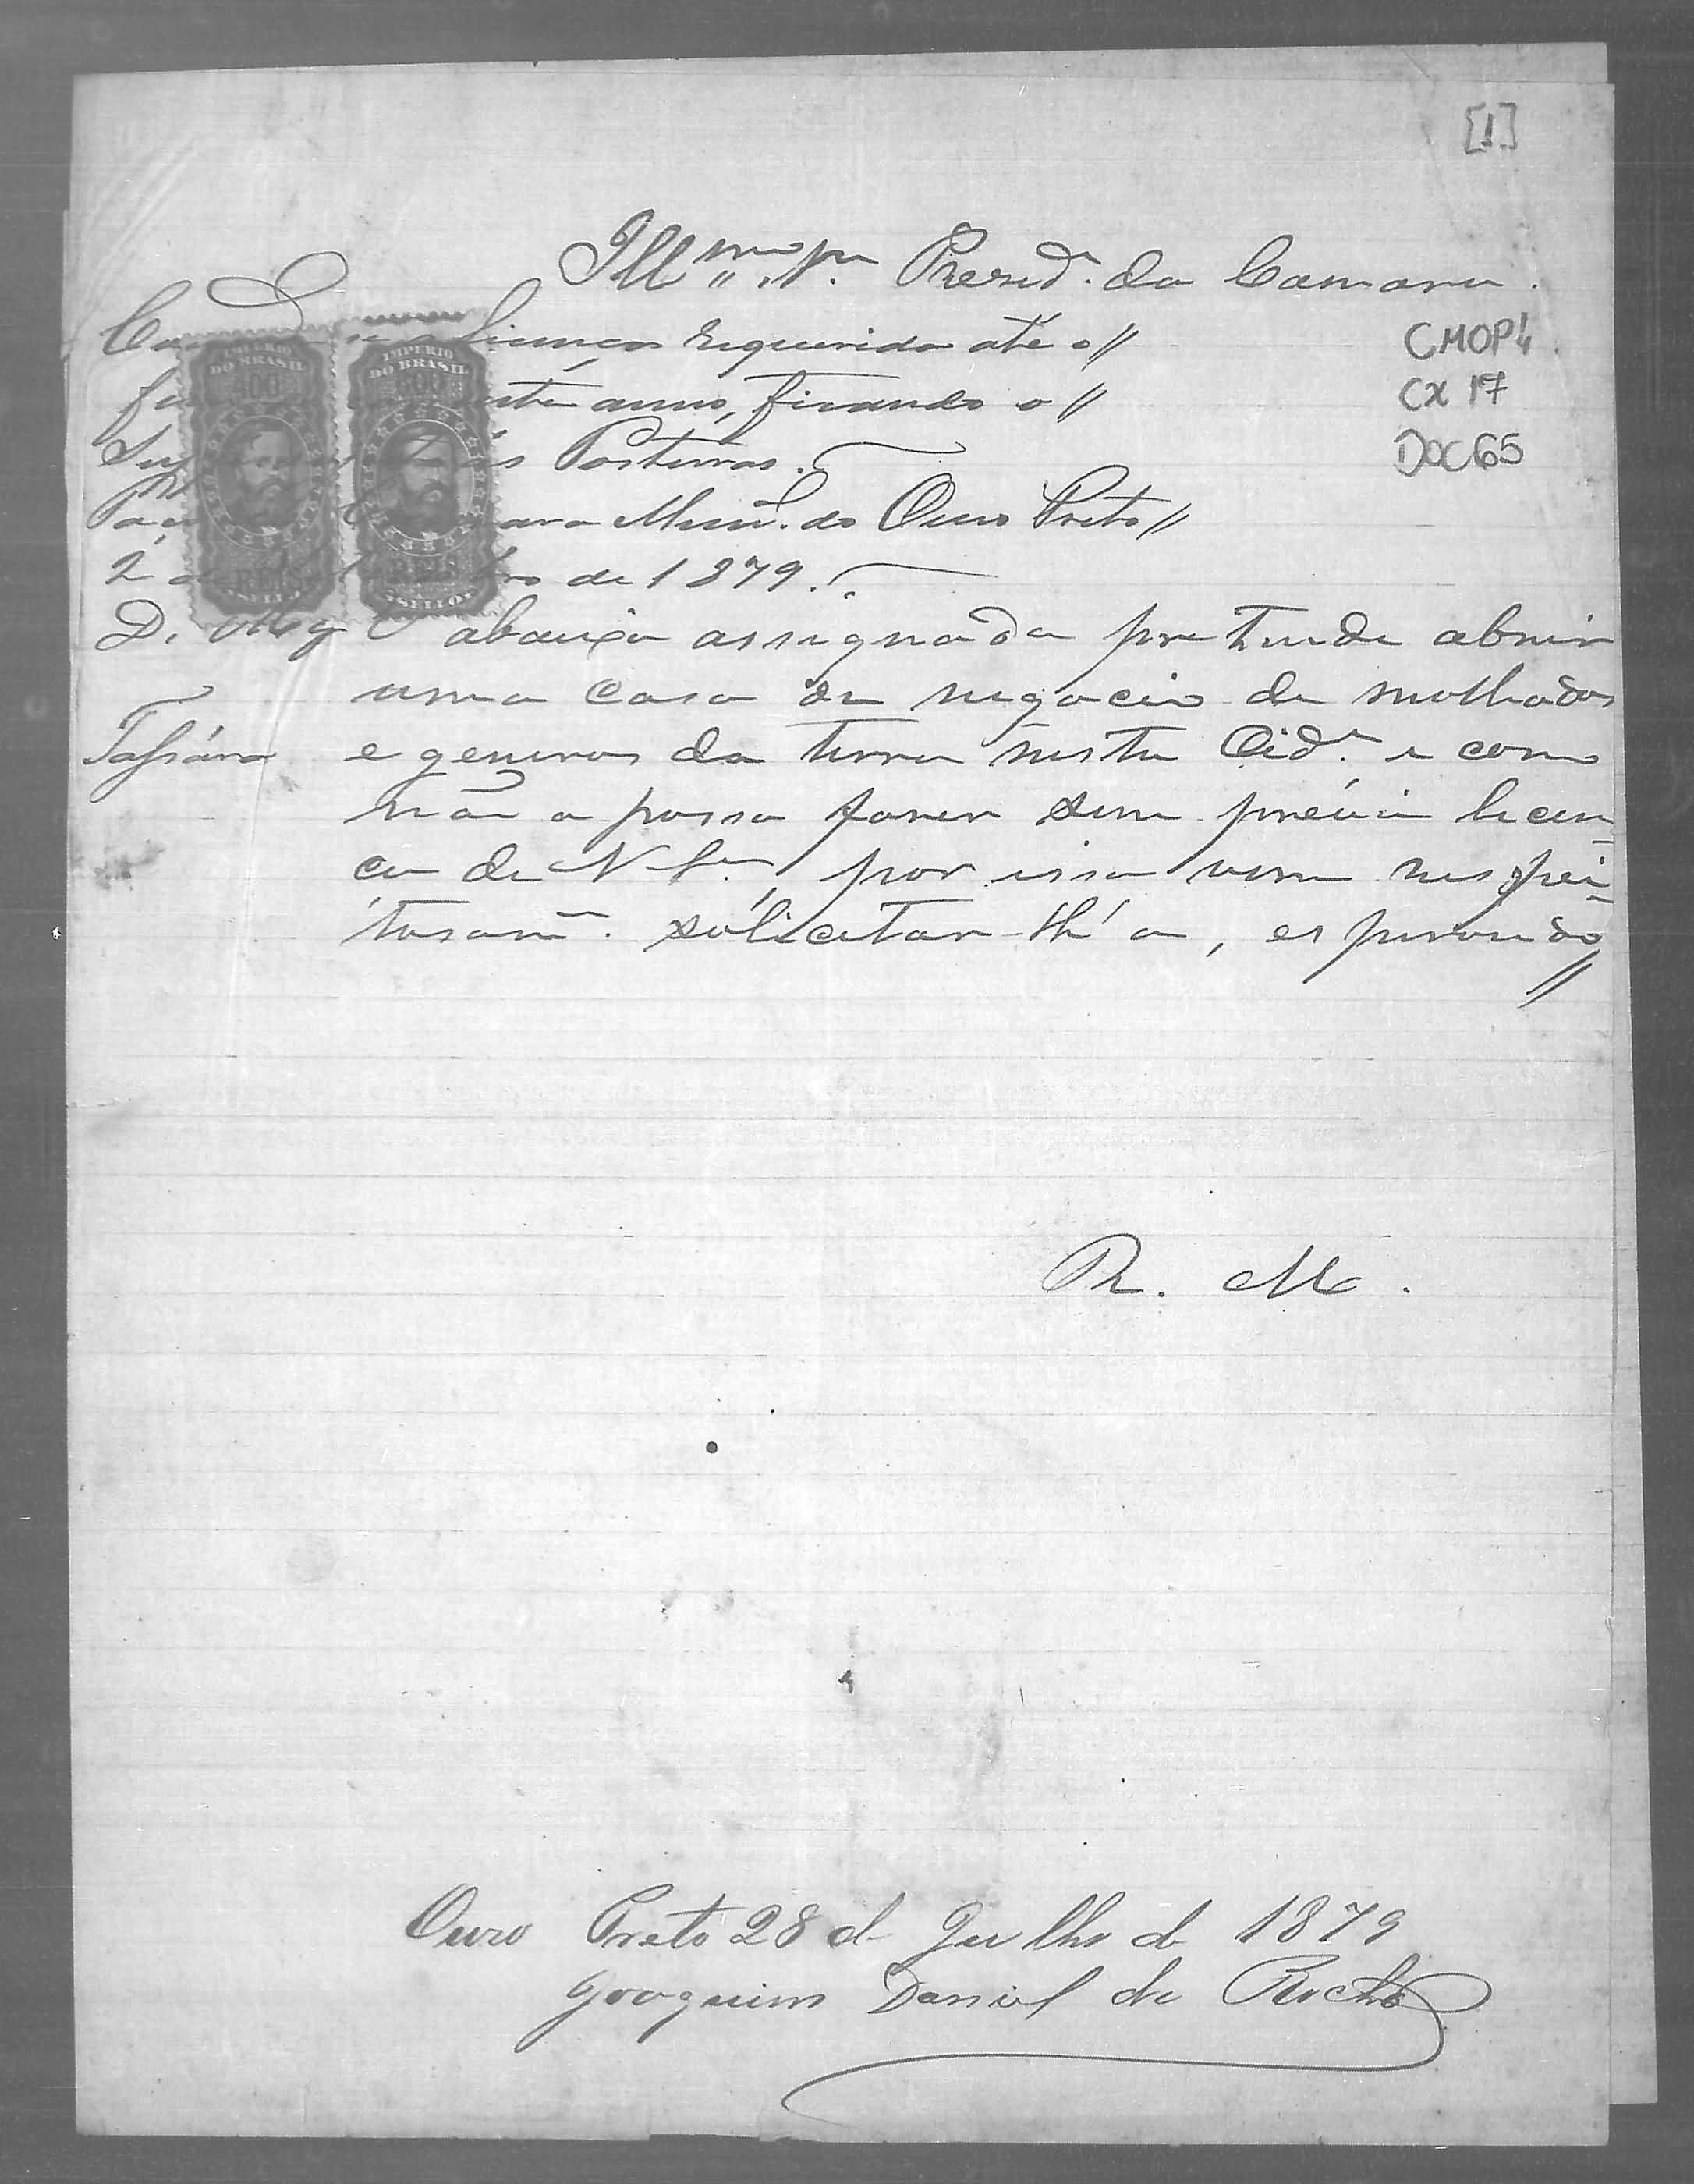 [1]
Ill.mo Sr. Presid.e da Camara.
licença requerida até o //
CMOP4
anno, ficando o //
CX 17
Posturas.
DOC65
Mun.al do Ouro Preto //
2 de 1879.
IMPERIO DO BRASIL
REIS
SELLO
IMPERIO DO BRASIL
REIS
SELLO
D. Mg
O abaixo assignado pretende abrir
uma casa de negocio de molhados
e generos da terra nesta Cid.e e como
não o possa fazer sem prévia licen-
ca de V. S.a, por isso vem respei-
tosam.e solicitar-lh'a, esperando
//
R. M.
Ouro Preto 28 d Julho d 1879
Joaquim Daniel da Rocha